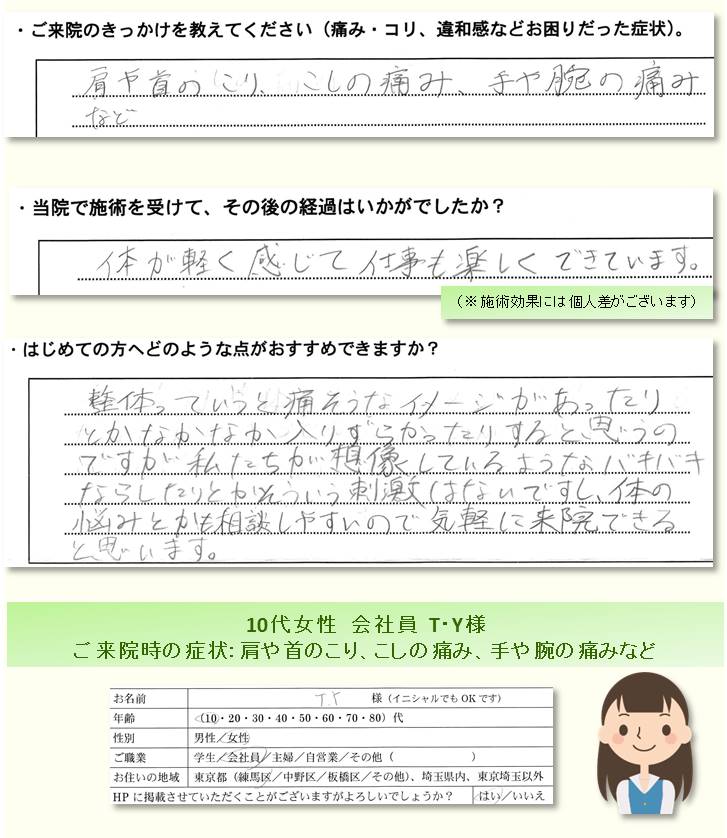 ・ご来院のきっかけを教えてください（痛み・コリ、違和感などお困りだった症状）。
肩や首のこり、こしの痛み、手や腕の痛み
など
・当院で施術を受けて、その後の経過はいかがでしたか？
体が軽く感じて仕事も楽しくできています。
（※施術効果には個人差がございます）
・はじめての方へどのような点がおすすめできますか？
整体っていうと痛そうなイメージがあったり
とかなかなか入りずらかったりすると思うの
ですが私たちが想像しているようなバキバキ
ならしたりとかそういう刺激はないですし、体の
悩みとかも相談しやすいので気軽に来院できる
と思います。
10代女性 会社員 T・Y様
ご来院時の症状:肩や首のこり、こしの痛み、手や腕の痛みなど
お名前 T.Y 様（イニシャルでもOKです）
年齢 （10・20・30・40・50・60・70・80）代
性別 男性／女性
ご職業 学生／会社員／主婦／自営業／その他（ ）
お住いの地域 東京都（練馬区／中野区／板橋区／その他）、埼玉県内、東京埼玉以外
HPに掲載させていただくことがございますがよろしいでしょうか？ はい／いいえ